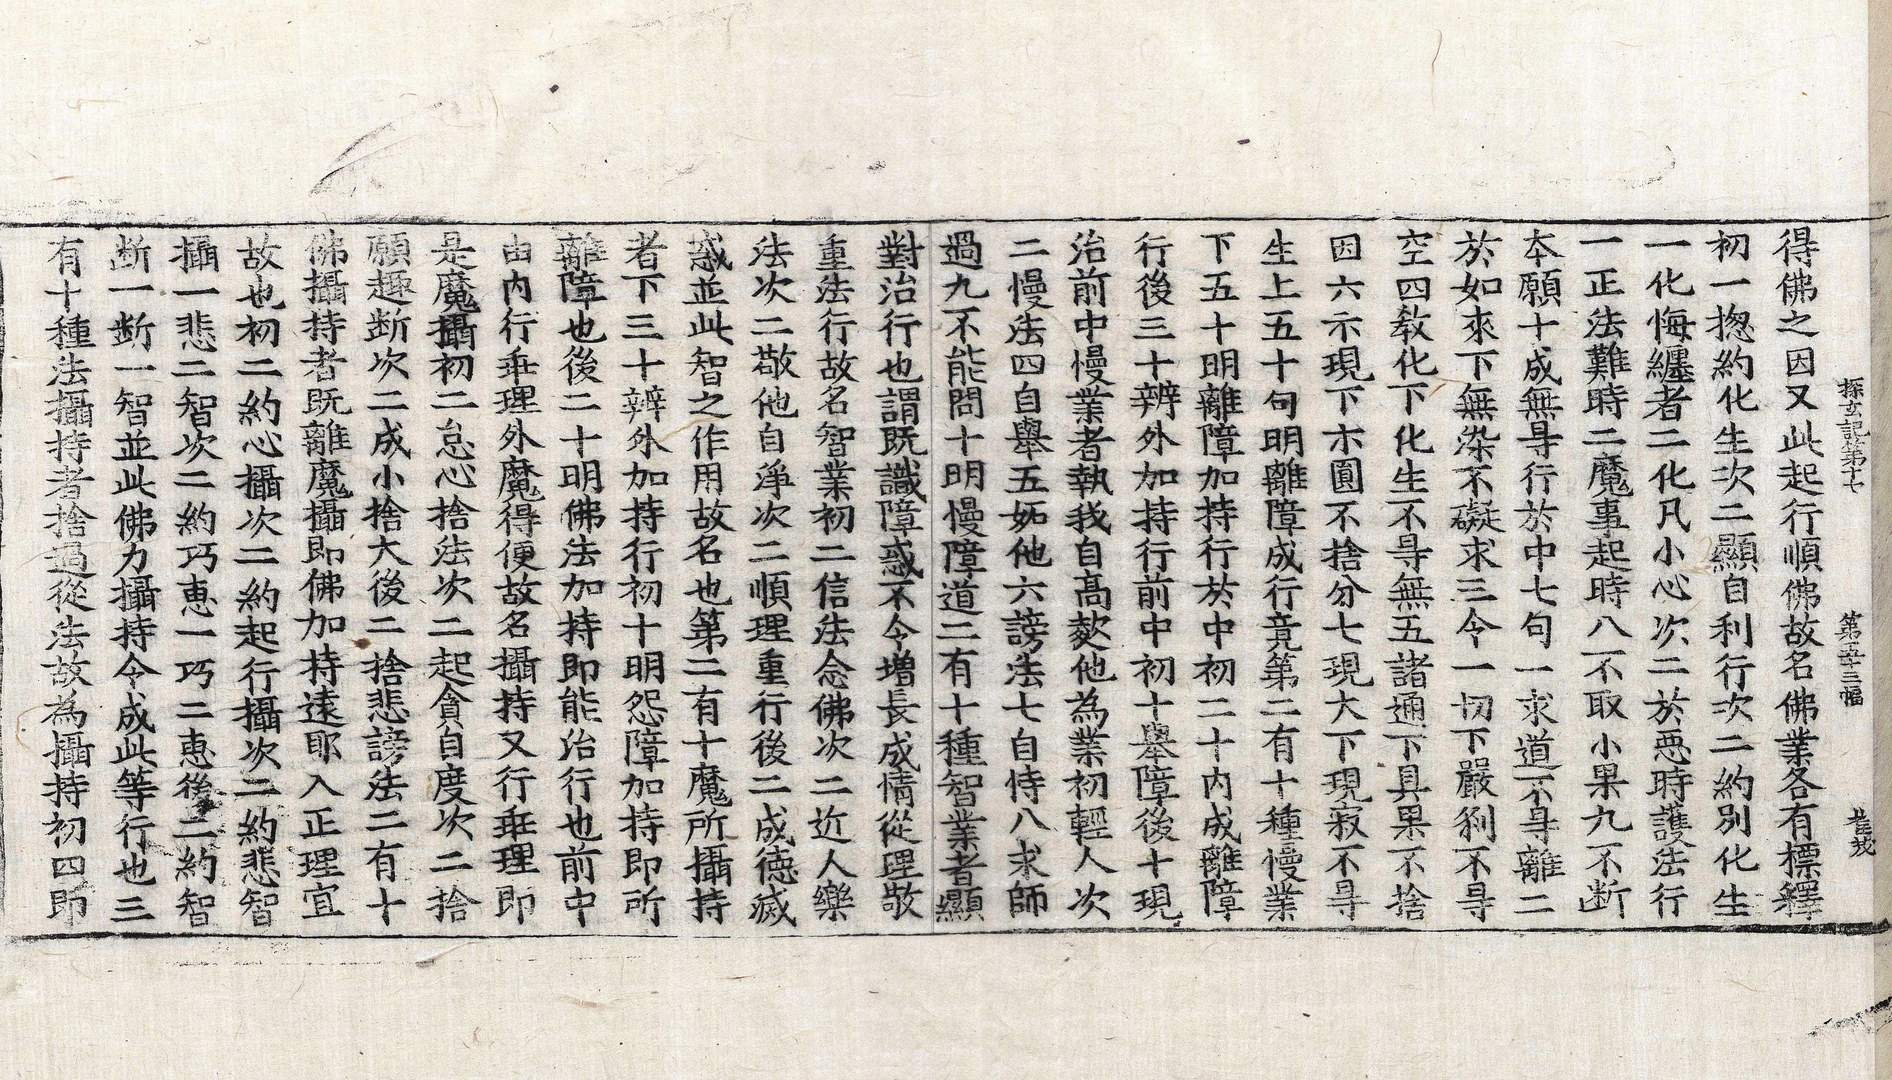 探玄記第十七 第五十三幅
得佛之因又此起行順佛故名佛業各有標釋
初一揔約化生次二顯自利行次二約別化生
一化悔纏者二化凡小心次二於惡時護法行
一正法難時二魔事起時八不取小果九不断
本願十成無㝵行於中七句一求道不㝵離二
於如來下無染不礙求三令一切下嚴刹不㝵
空四教化下化生不㝵無五諸通下具果不捨
因六示現下朩圓不捨分七現大下現寂不㝵
生上五十句明離障成行竟第二有十種慢業
下五十明離障加持行於中初二十内成離障
行後三十辨外加持行前中初十舉障後十現
治前中慢業者執我自高欺他為業初輕人次
二慢法四自舉五妬他六謗法七自恃八求師
過九不能問十明慢障道二有十種智業者顯
對治行也謂既識障惑不令増長成情從理敬
重法行故名智業初二信法念佛次二近人樂
法次二敬他自淨次二順理重行後二成德滅
惑並此智之作用故名也第二有十魔所攝持
者下三十辨外加持行初十明怨障加持即所
離障也後二十明佛法加持即能治行也前中
由内行乖理外魔得便故名攝持又行乖理即
是魔攝初二怠心捨法次二起貪自度次二捨
願趣断次二成小捨大後二捨悲謗法二有十
佛攝持者既離魔攝即佛加持遠耶入正理宜
故也初二約心攝次二約起行攝次二約悲智
攝一悲二智次二約巧恵一巧二恵後二約智
断一断一智並此佛力攝持令成此等行也三
有十種法攝持者捨過從法故為攝持初四即